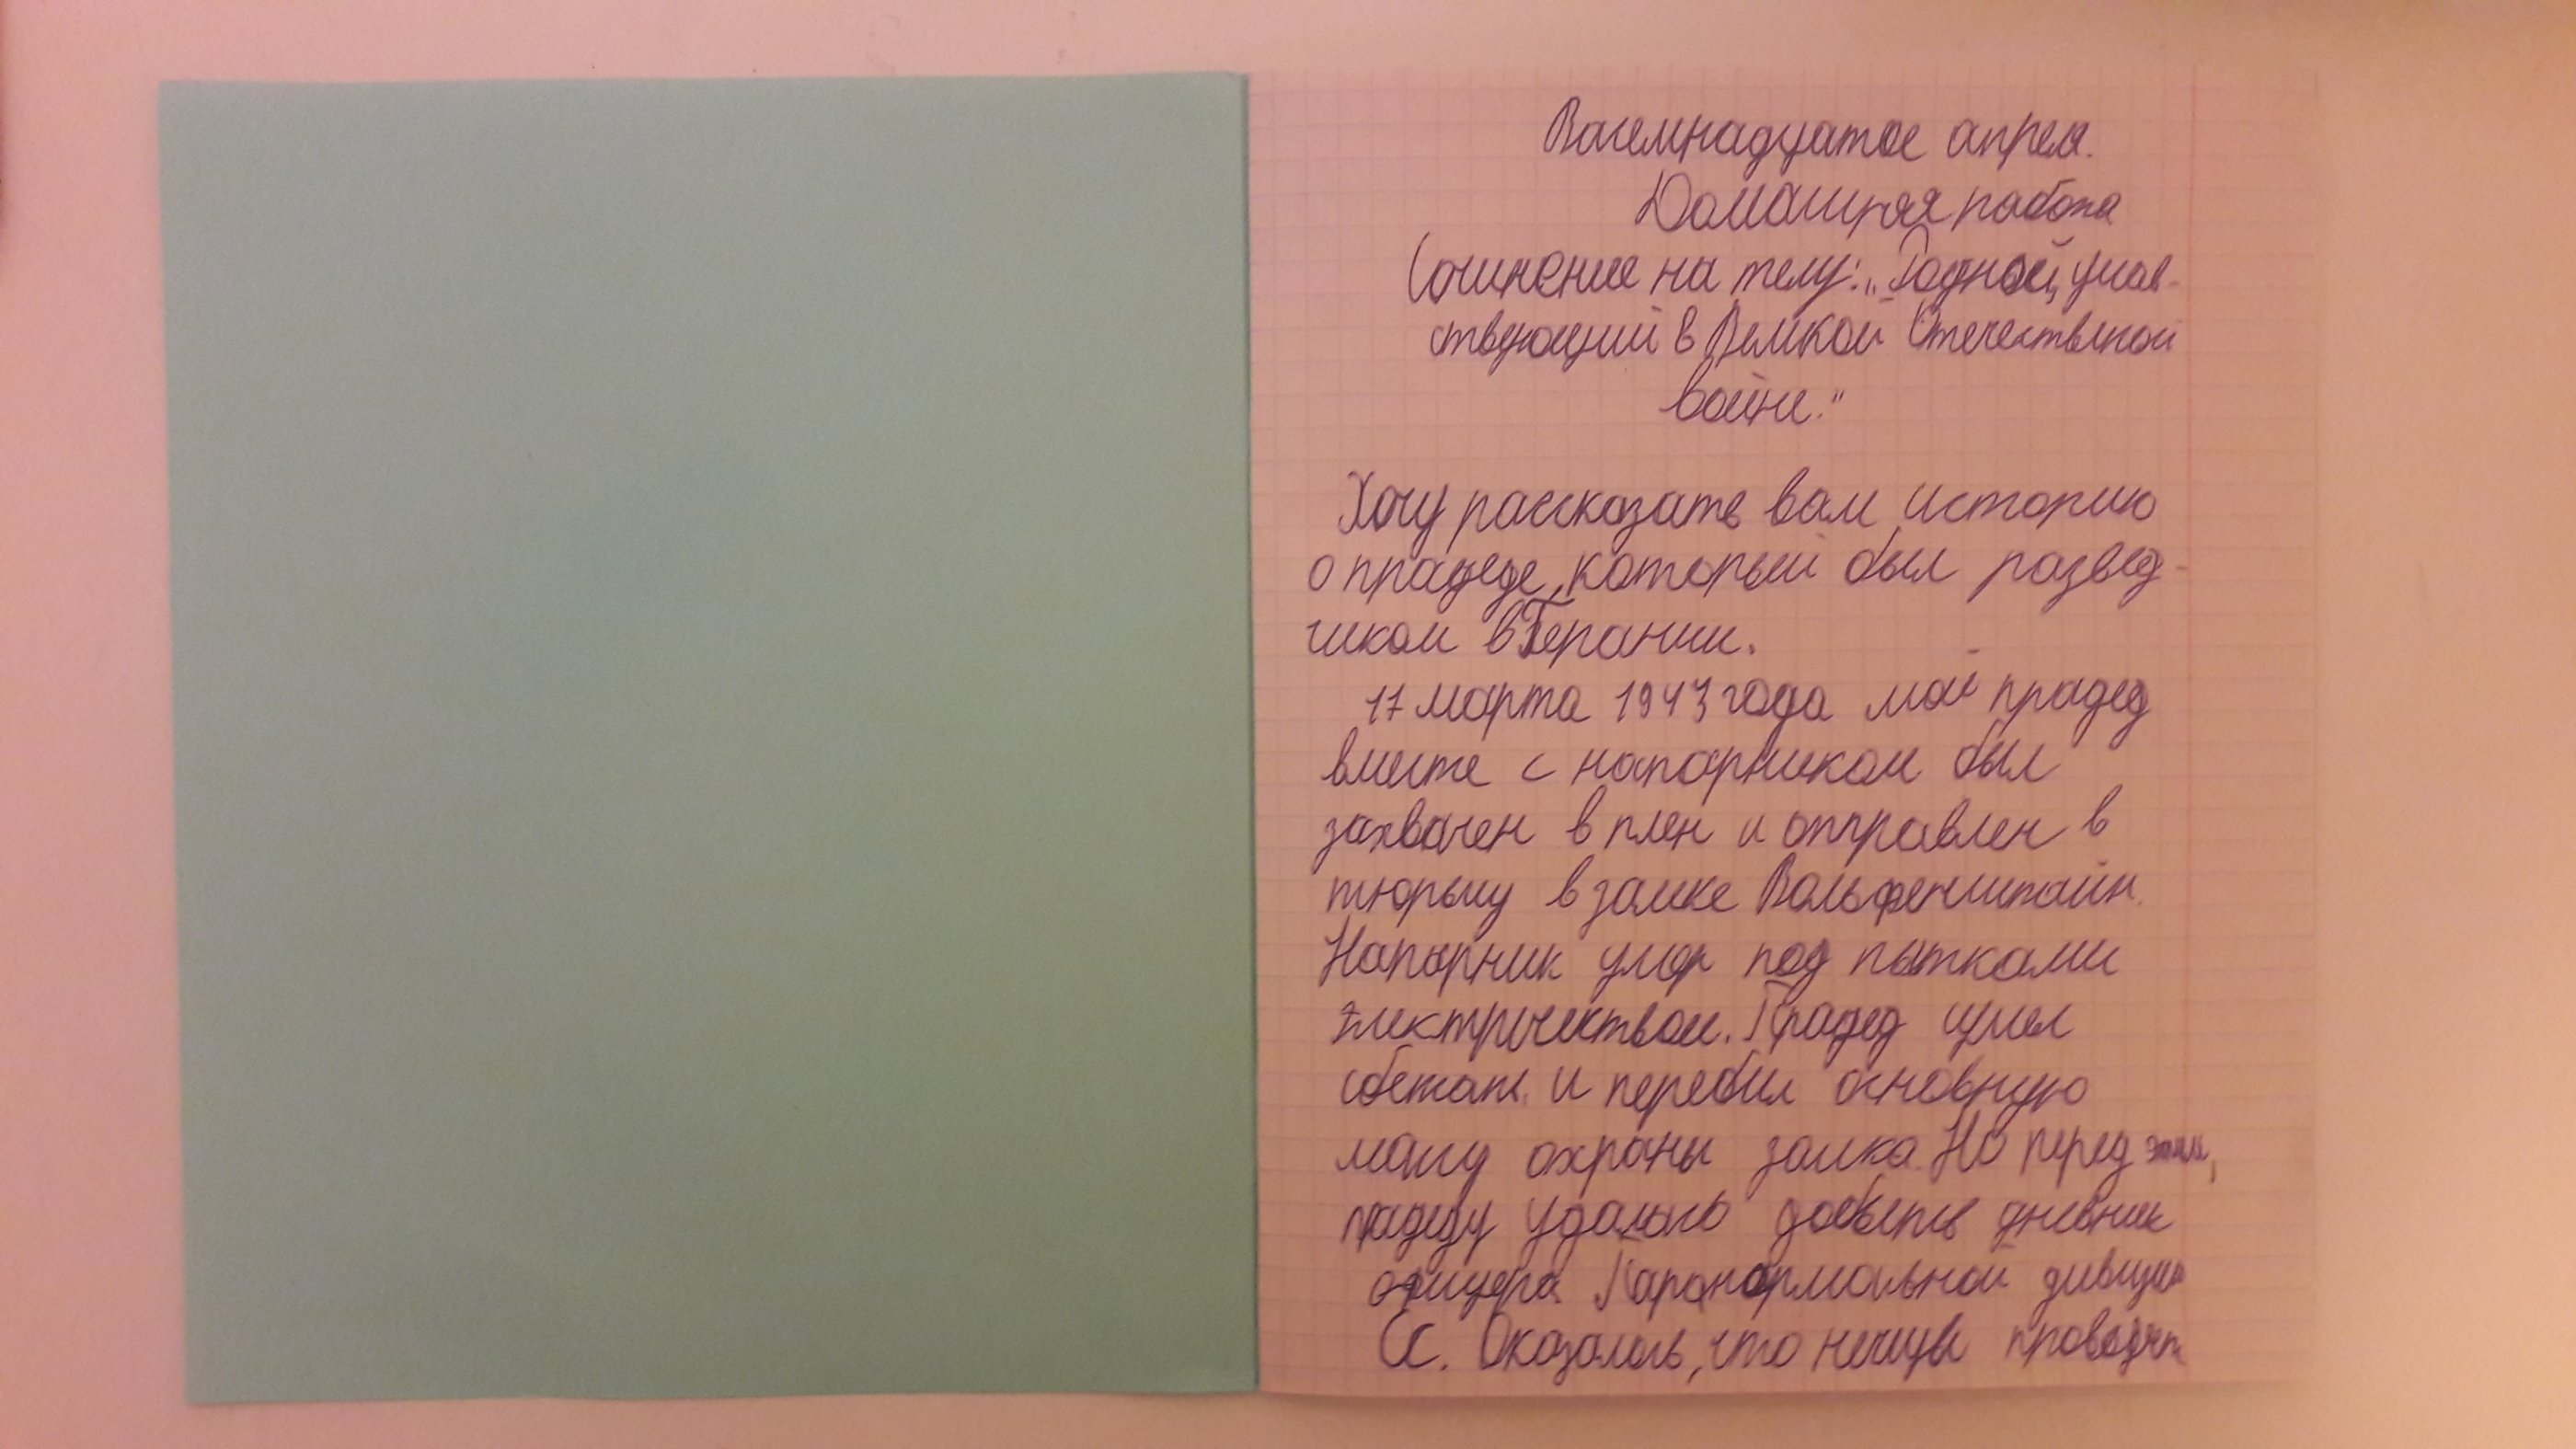 Восемнадцатое апреля.
Домашняя работа
Сочинение на тему: „Родной, учав-
ствующий в Великой Отечественой
войне."
Хочу рассказать вам историю
о прадеде, который был развед-
чиком в Герании.
17 марта 1943 года мой прадед
вместе с напарником был
захвачен в плен и отправлен в
тюрьму в замке Вольфенштайн.
Напарник умер под пытками
электричеством. Прадед сумел
сбежать и перебил основную
массу охраны замка. Но перед этим,
прадеду удалось добыть дневник
офицера Паранормальной дивизии
СС. Оказалось, что немцы проводят